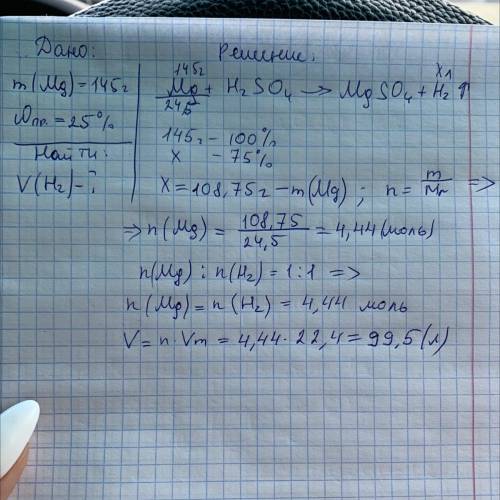 Дано:
m(Mg)=145г
ωпр.=25%
Найти:
V(H₂)-?
Решение:
145г
хл
Mg + H₂SO₄ → MgSO₄ + H₂↑
24,5
145г - 100%
х - 75%
х = 108,75г - m(Mg) ; n = m/Mr =>
=> n(Mg) = 108,75/24,5 = 4,44(моль)
n(Mg) : n(H₂) = 1:1 =>
n(Mg) = n(H₂) = 4,44 моль
V = n·Vm = 4,44·22,4 = 99,5(л)